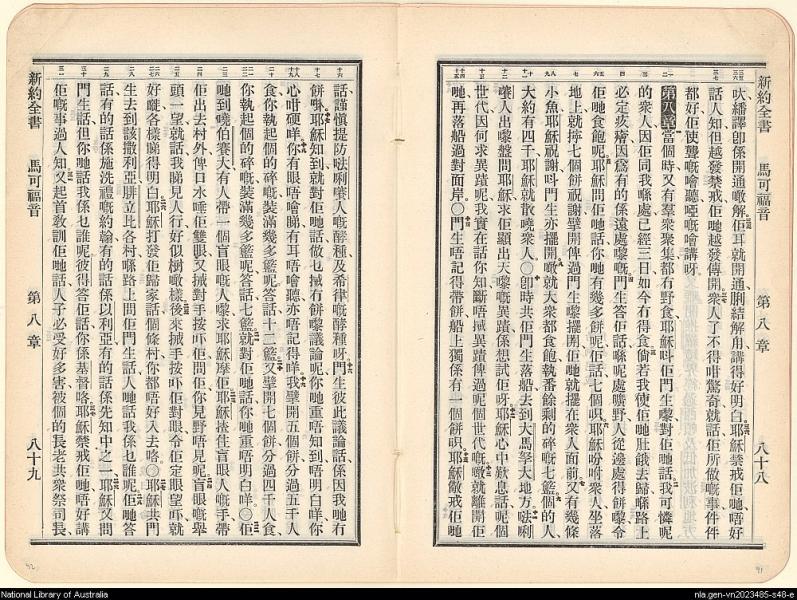 新約全書 馬可福音 第八章 八十八
吠繙譯卽係開通嗽解佢耳就開通脷結解甩講得好明白耶穌禁戒佢哋唔好
話人知但越發禁戒佢哋越發傳開衆人了不得咁驚奇就話佢所做嘅事件件
都好佢使聾嘅噲聽啞嘅噲講呀
第八章 當個時又有羣衆聚集都冇野食耶穌呌佢門生嚟對佢哋話我可憐呢
的衆人因佢同我喺處已經三日如今冇得食倘若我使佢哋肚餓去歸喺路上
必定因爲有的係遠處嚟嘅門生答佢話喺呢處曠野人從邊處得餅嚟令
佢哋食飽呢耶穌問佢哋話你哋有幾多餅呢佢話七個耶穌吩咐衆人坐落
地上就擰七個餅祝謝擘開俾過門生嚟擺開佢哋就擺在衆人面前又有幾條
小魚耶穌祝謝呌門生亦擺開嗽就大衆都食飽執番餘剩的碎嘅七籃個的人
大約有四千耶穌就散嘵衆人○卽時共佢門生落船去到大馬拏大地方唎
人出嚟盤問耶穌求佢顯出天嚟嘅異蹟係想試佢呀耶穌心中歎息話呢個
世代因何求異蹟呢我實在話你知斷唔異蹟俾過呢個世代嘅嗽就離開佢
哋再落船過對面岸○門生唔記得帶餅船上獨係有一個餅耶穌儆戒佢哋
話謹愼提防唎人嘅酵種及希律嘅酵種呀門生彼此議論話係因我哋冇
餅耶穌知到就對佢哋話做乜冇餅嚟議論呢你哋重唔知到唔明白咩你
心咁硬咩你有眼唔噲睇有耳唔噲聽亦唔記得咩我擘開五個餅分過五千人
食你執起個的碎嘅裝滿幾多籃呢答話十二籃又擘開七個餅分過四千人食
你執起個的碎嘅裝滿幾多籃呢答話七籃就對佢哋話你哋重唔明白咩○佢
哋到嘵伯賽大有人帶一個盲眼嘅人嚟求耶穌摩佢耶穌㨂住盲眼人嘅手帶
佢出去村外俾口水唾佢雙眼又對手按吓佢問佢你見野唔見呢盲眼嘅舉
頭一望就話我睇見人行好似樹嗽樣後來手按吓佢對眼令佢定眼望吓就
好嘵各樣睇得明白耶穌打發佢歸家話個條村你都唔好入去咯○耶穌共門
生去到該撒利亞腓立比各村喺路上問佢門生話人哋話我係乜誰呢佢哋答
話有的話係施洗禮嘅約翰有的話係以利亞有的話係先知中之一耶穌又問
門生話但你哋話我係乜誰呢彼得答佢話你係基督咯耶穌禁戒佢哋唔好講
佢嘅事過人知又起首敎訓佢哋話人子必受好多害被個的長老共衆祭司長
新約全書 馬可福音 第八章 八十九
42
41
National Library of Australia
nla.gen-vn2023485-s48-e